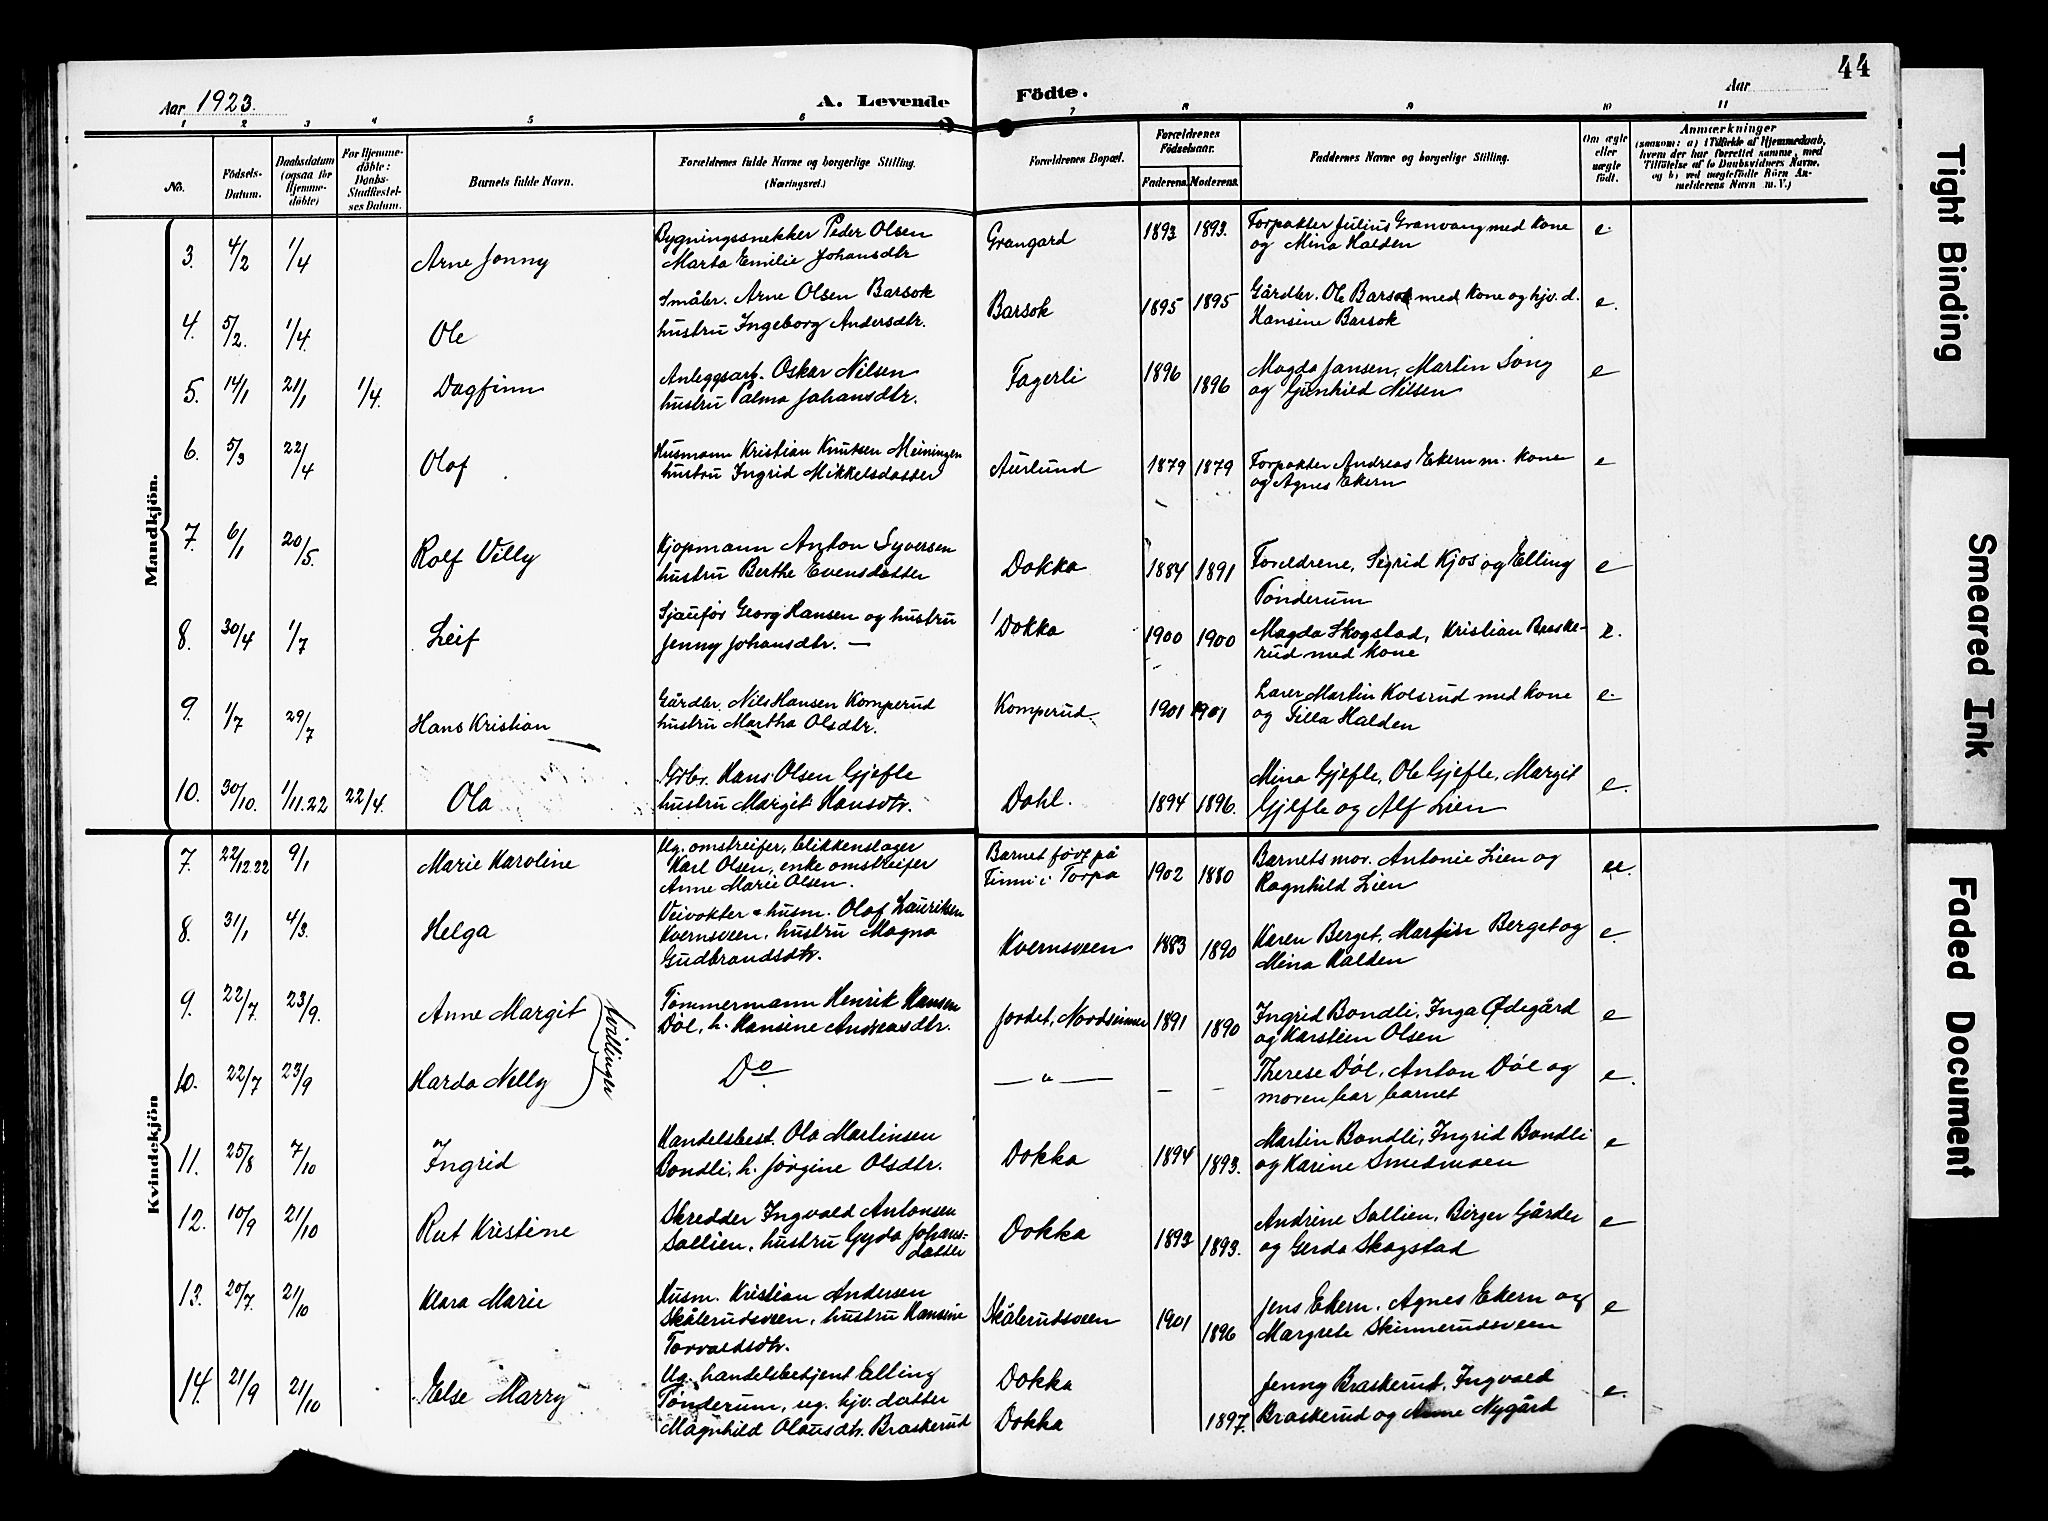 44
Aar 1923.
A. Levende
Födte.
Aar
1 2 3 4 5 6 7 8 9 10 11
No.
Födsels-
Datum.
Daabsdatum
(ogsaa for
Hjemme-
döbte)
For Hjemme-
döbte:
Daabs-
Stadfæstel-
ses Datum.
Barnets fulde Navn.
Forældrenes fulde Navne og borgerlige Stilling.
(Næringsvei.)
Forældrenes Bopæl.
Forældrenes
Födselsaar.
Faderens. Moderens.
Faddernes Navne og borgerlige Stilling.
Om ægte
eller
uægte
födt.
Anmærkninger
(saasom: a) i Tilfælde af Hjemmedaab,
hvem der har forrettet samme, med
Tilföielse af to Daabsvidners Navne,
og b) ved uægtefödte Börn An-
melderens Navn m. V.)
Mandkjön.
3. 4/2 1/4 Arne Jonny
Bygningssnekker Peder Olsen
Marta Emilie Johansdtr
Grangard 1893 1893.
Forpakter Julius Granvang med kone
og Mina Halden
e.
4. 5/2. 1/4. Ole
Småbr. Arne Olsen Barsok
hustru Ingeborg Andersdtr.
Barsok 1895 1895
Gårdbr. Ole Barsok med kone og hjv. d.
Hansine Barsok
e.
5. 14/1 21/1 1/4. Dagfinn
Anleggsarb. Oskar Nilsen
hustru Palma Johansdtr.
Fagerli 1896 1896
Magda Jansen, Martin Song
og Gunhild Nilsen
e
6. 5/3 22/4 Olaf
Husmann Kristian Knutsen Meiningen
hustru Ingrid Mikkelsdatter
Aurlund 1879 1879
Forpakter Andreas Ekern m. kone
og Agnes Ekern
e
7. 6/1 20/5. Rolf Villy
Kjøpmann Anton Syversen
hustru Berthe Evensdatter
Dokka 1884 1891
Foreldrene, Sigrid Kjos og Elling
Tønderum
e
8. 30/4 1/7 Leif
Sjaufør Georg Hansen og hustru
Jenny Johansdtr. —
Dokka 1900 1900
Magda Skogstad, Kristian Braske-
rud med kone
e.
9. 1/7 29/7 Hans Kristian
Gårdbr. Nils Hansen Komperud
hustru Martha Olsdtr.
Komperud 1901 1901
Lærer Martin Kolsrud med kone
og Tilla Halden
e.
10. 30/10. 1/11.22 22/4. Ola
Gdbr. Hans Olsen Gjefle
hustru Margit Hansdtr.
Dahl. 1894 1896.
Mina Gjefle, Ole Gjefle, Margit
Gjefle og Alf Lien
e.
Kvindekjön
7. 22/12.22 9/1 Marie Karoline
Ug. omstreifer, blikkenslager
Karl Olsen, enke omstreifer
Anne Marie Olsen.
Barnet født på
Finni i Torpa
1902 1880
Barnets mor, Antonie Lien og
Ragnhild Lien
ue.
8. 31/1 4/3. Helga
Veivokter & husm. Olaf Lauritsen
Kvernsveen, hustru Magna
Gudbrandsdtr.
Kvernsveen 1883 1890
Karen Berget, Martin Berget og
Mina Halden
e.
9. 22/7. 23/9. Anne Margit
Tømmermann Henrik Hansen
Døl, h. Hansine Andreasdtr.
Jordet, Nordsinni 1891 1890
Ingrid Bondli, Inga Ødegård
og Karstein Olsen
e
tvillinger
10. 22/7 23/9 Harda Nelly
Do
— " — — —
Therese Døl, Anton Døl og
moren bar barnet
e.
11. 25/8 7/10 Ingrid
Handelsbest. Ola Martinsen
Bondli, h. Jørgine Olsdtr.
Dokka 1894 1893.
Martin Bondli, Ingrid Bondli
og Karine Smedmoen
e
12. 10/9 21/10 Rut Kristine
Skredder Ingvald Antonsen
Sollien, hustru Gyda Johans-
datter
Dokka 1893 1893.
Andrine Sollien, Birger Gårder
og Gerda Skogstad
e
13. 20/7. 21/10 Klara Marie
Husm. Kristian Andersen
Skålerudsveen, hustru Hansine
Torvaldsdtr.
Skålerudsveen 1901 1896
Jens Ekern, Agnes Ekern og
Margrete Skinnerudsveen
e
14. 21/9 21/10 Else Marry
Ug. handelsbetjent Elling
Tønderum, ug. hjv. datter
Magnhild Olausdtr. Braskerud
Dokka
Dokka
1897.
Jenny Braskerud, Ingvald
Braskerud og Anne Nygård
e.
Tight Binding
Smeared Ink
Faded Document